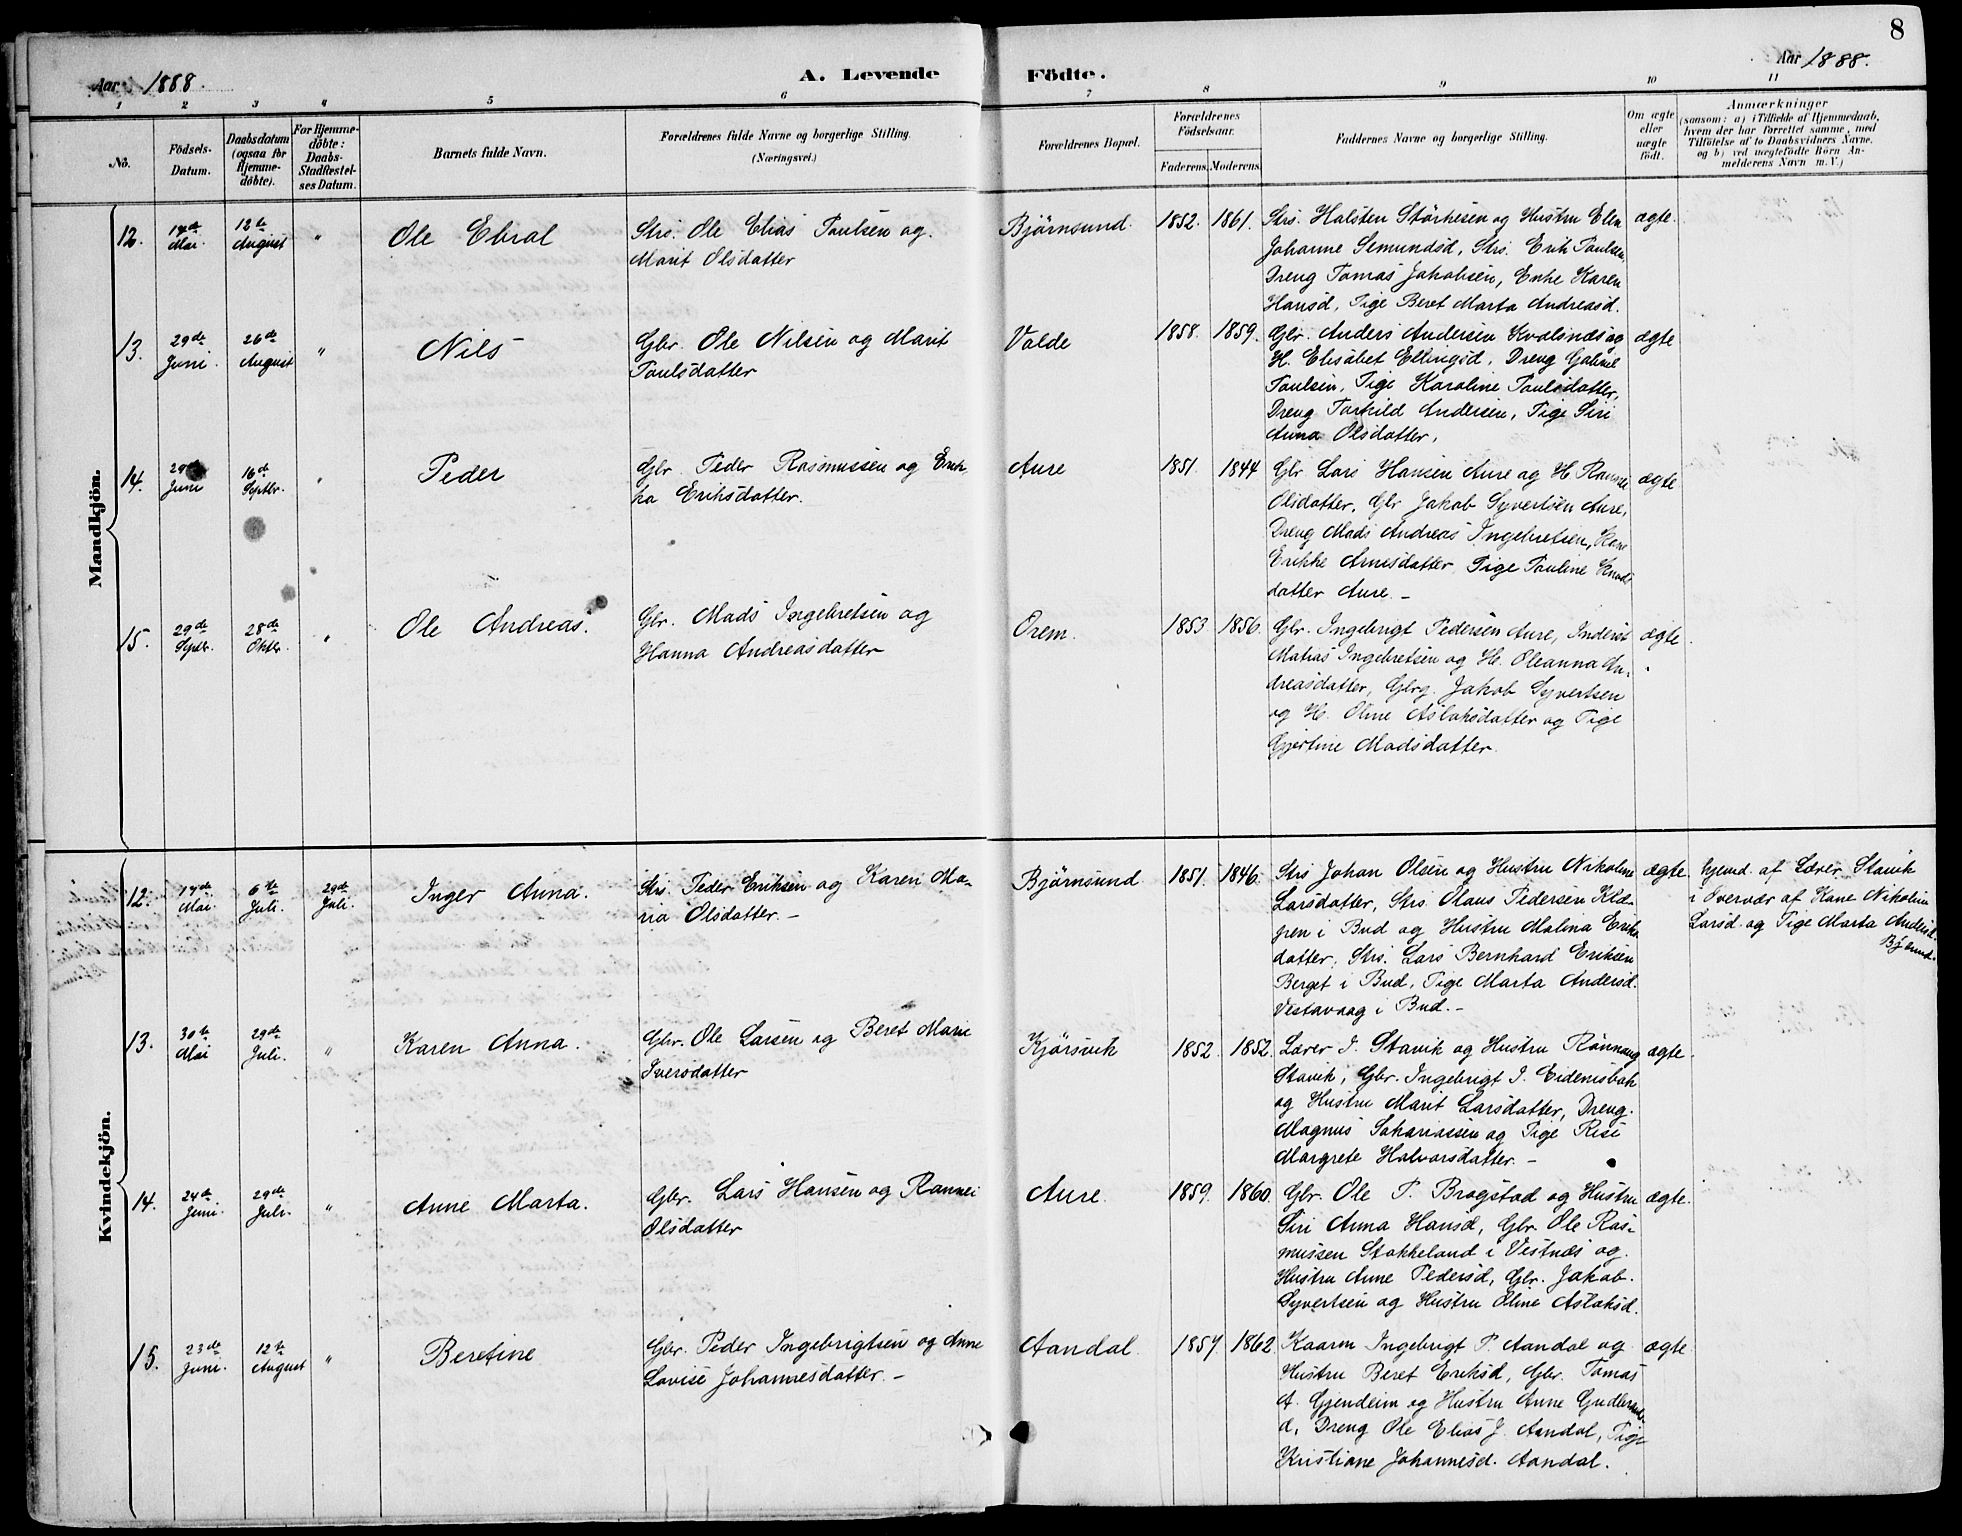 8
Aar 1888.
A. Levende Födte.
Aar 1888.
1 2 3 4 5 6 7 8 9 10 11
No.
Födsels-
Datum.
Daabsdatum
(ogsaa for
Hjemme-
döbte).
For Hjemme-
döbte:
Daabs-
Stadfestel-
ses Datum.
Barnets fulde Navn.
Forældrenes fulde Navne og borgerlige Stilling.
(Næringsvei.)
Forældrenes Bopæl.
Forældrenes
Födselsaar.
Faderens. Moderens.
Faddernes Navne og borgerlige Stilling.
Om ægte
eller
uægte
födt.
Anmærkninger
(saasom: a) i Tilfælde af Hjemmedaab,
hvem der har forrettet samme, med
Tilföielse af to Daabsvidners Navne,
og b) ved uægtefödte Börn An-
melderens Navn m. V.)
Mandkjön.
12.
14de
Mai.
12te
August
"
Ole Edval
Strs. Ole Elias Paulsen og
Marit Olsdatter
Bjørnsund.
1852. 1861.
Strs. Halsten Størkesen og Hustru Elen
Johanne Semundsd, Strs. Erik Paulsen,
Dreng Tomas Jakobsen, Enke Karen
Hansd, Pige Beret Marta Andreasd.
ægte.
13.
29de
Juni.
26de
August
"
Nils
Gbr. Ole Nilsen og Marit
Paulsdatter
Valde
1858. 1859.
Gbr. Anders Andersen Kvalsnæs og
H. Elisabet Ellingsd, Dreng Gabriel
Paulsen, Pige Karoline Paulsdatter,
Dreng Torkild Andersen, Pige Siri
Anna Olsdatter.
ægte
14.
29de
Juni
16de
Septbr.
"
Peder
Gbr. Peder Rasmussen og Erik-
ka Eriksdatter.
Aure
1851. 1844
Gbr Lars Hansen Aure og H. Rannei
Olsdatter, Gbr Jakob Syvertsen Aure,
Dreng Mads Andreas Ingebretsen, Kone
Erikke Arnesdatter, Pige Pauline Knuds-
datter Aure. –
ægte
15.
29de
Septbr.
28de
Oktbr.
"
Ole Andreas.
Gbr. Mads Ingebretsen og
Hanna Andreasdatter
Orem.
1853. 1856.
Gbr. Ingebrigt Pedersen Aure, Inderst
Matias Ingebretsen og H. Oleanna An-
dreasdatter, Gbrg. Jakob Syvertsen
og H. Oline Aslaksdatter og Pige
Gjertine Madsdatter.
ægte
Kvindekjön.
12.
14de
Mai.
6te
Juli.
29de
Juli.
Inger Anna.
Strs. Peder Eriksen og Karen Ma-
ria Olsdatter. –
Bjørnsund
1851. 1846.
Strs Johan Olsen og Hustru Nikoline
Larsdatter, Strs. Olaus Pedersen
i Bud og Hustru Malina Eriks-
datter, Strs. Lars Bernhard Eriksen
Berget i Bud, Pige Marta Andersd.
Vestavaag i Bud. –
ægte
hjemd. af Lærer Stavik
i Overvær af Kone Nikoline
Larsd. og Pige Marta Andersd.
13.
30te
Mai
29de
Juli.
"
Karen Anna.
Gbr. Ole Larsen og Beret Marie
Iversdatter
Kjørsvik
1852. 1852.
Lærer J. Stavik og Hustru Rønnaug
Stavik, Gbr. Ingebrigt I. Eidemsbak
og Hustru Marit Larsdatter, Dreng
Magnus Sakariassen og Pige Risi
Margrete Halvorsdatter. –
ægte.
14.
24de
Juni.
29de
Juli.
"
Anne Marta.
Gbr. Lars Hansen og Rannei
Olsdatter
Aure.
1859. 1860.
Gbr. Ole P. Bragstad og Hustru
Siri Anna Hansd, Gbr. Ole Ras-
mussen Stokkeland i Vestnæs og
Hustru Anne Pedersd, Gbr. Jakob
Syvertsen og Hustru Oline Aslaksd.
ægte.
15.
23de
Juni.
12te
August
"
Beretine
Gbr. Peder Ingebrigtsen og Anne
Lovise Johannesdatter. –
Aandal.
1857. 1862.
Kaarm Ingebrigt P. Aandal og
Hustru Beret Eriksd, Gbr. Tomas
A. Gjendeim og Hustru Anne
d, Dreng Ole Elias J. Aandal, Pige
Kristiane Johannesd. Aandal.
ægte